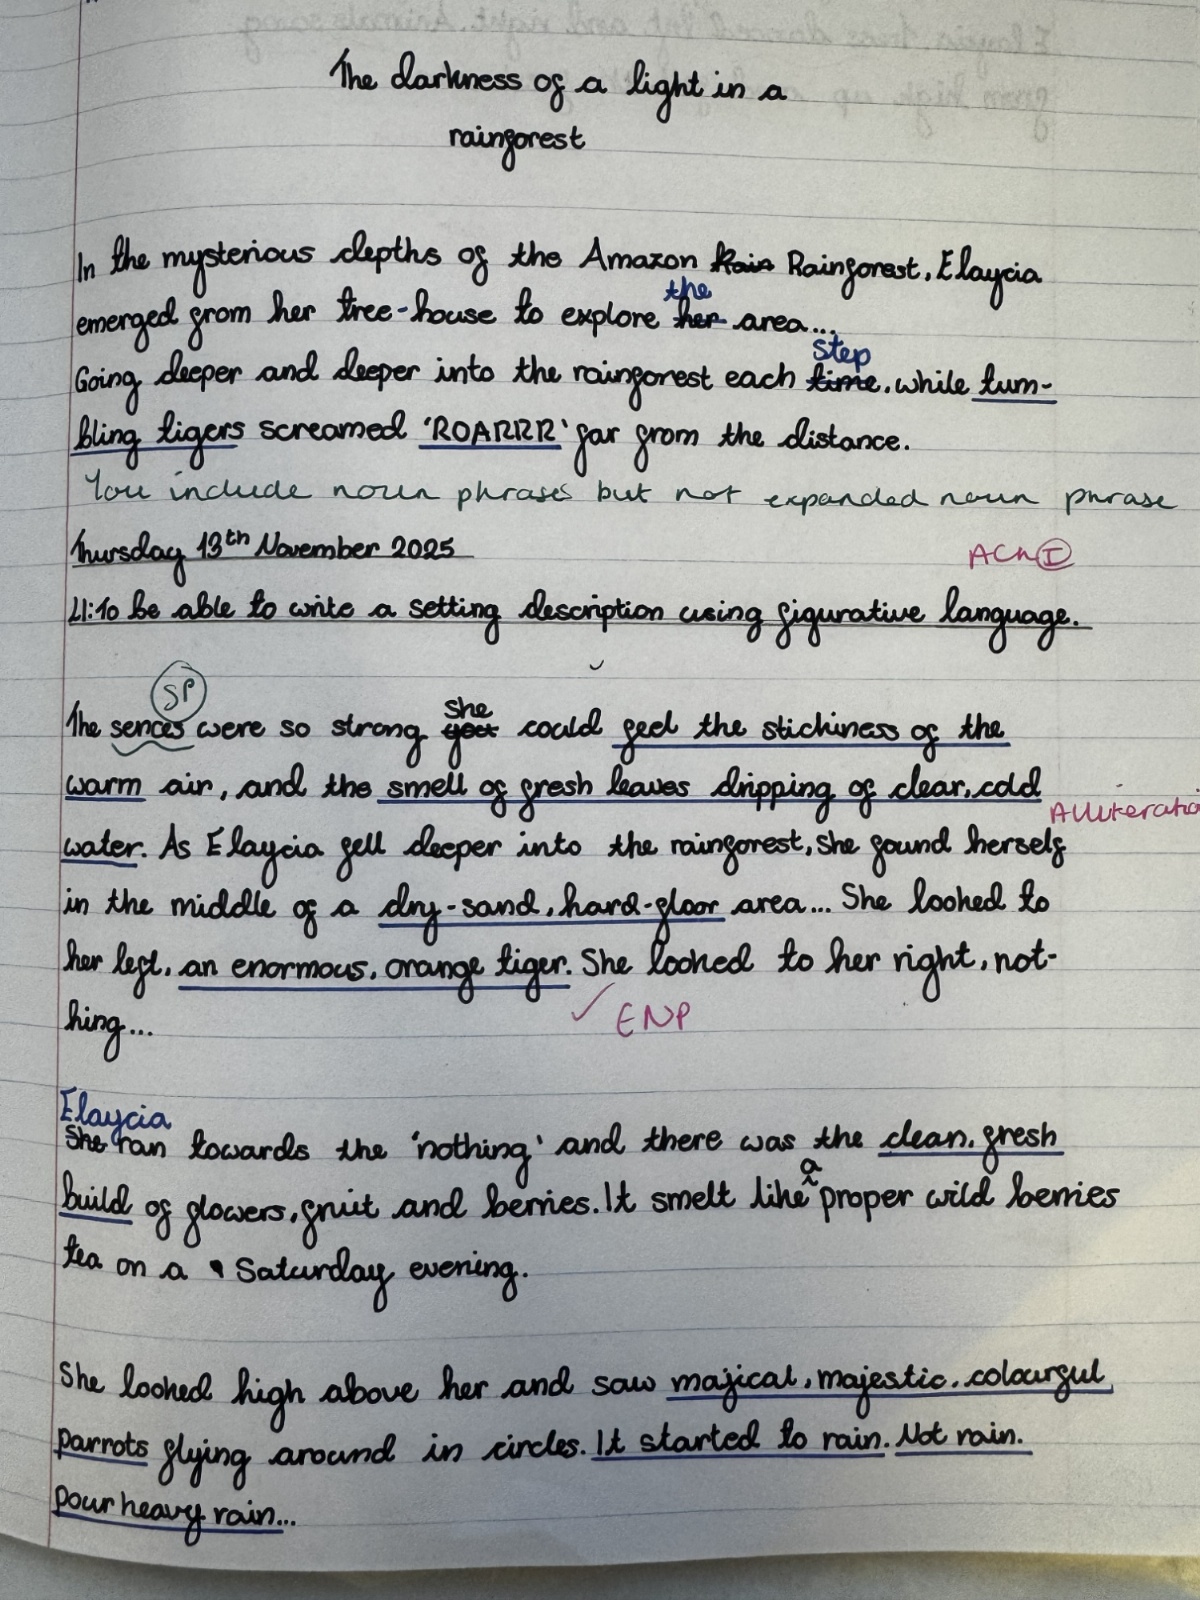 The darkness of a light in a
rainforest
In the mysterious depths of the Amazon Rain Rainforest, Elaycia
the
emerged from her tree-house to explore her area...
step
Going deeper and deeper into the rainforest each time, while tum-
bling tigers screamed 'ROARRR' far from the distance.
You include noun phrases but not expanded noun phrase
Thursday 13th November 2025
ACH I
LI: To be able to write a setting description using figurative language.
SP
she
The sences were so strong could feel the stichiness of the
warm air, and the smell of fresh leaves dripping of clear, cold
Alluteratio
water. As Elaycia fell deeper into the rainforest, she found herself
in the middle of a dry-sand, hard-floor area... She looked to
her left, an enormous, orange tiger. She looked to her right, not-
hing...
✓ ENP
Elaycia
She ran towards the 'nothing' and there was the clean, fresh
a
build of flowers, fruit and berries. It smelt like proper wild berries
tea on a Saturday evening.
She looked high above her and saw majical, majestic, colourful
parrots flying around in circles. It started to rain. Not rain.
pour heavy rain...